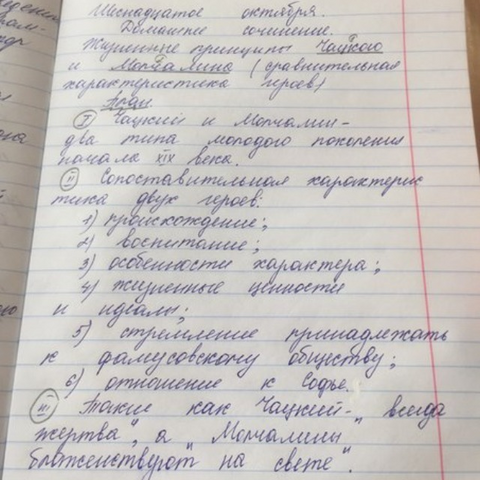 Шестнадцатое октября.
Домашнее сочинение.
Жизненные принципы Чацкого
и Молчалина (сравнительная
характеристика героев)
План
I Чацкий и Молчалин-
два типа молодого поколения
начала XIX века.
II Сопоставительная характерис
тика двух героев:
1) происхождение;
2) воспитание;
3) особенности характера;
4) жизненные ценности
и идеалы;
5) стремление принадлежать
к фамусовскому обществу;
6) отношение к Софье.
III Такие как Чацкий-„всегда
жертва", а „Молчалины
блаженствуют на свете".